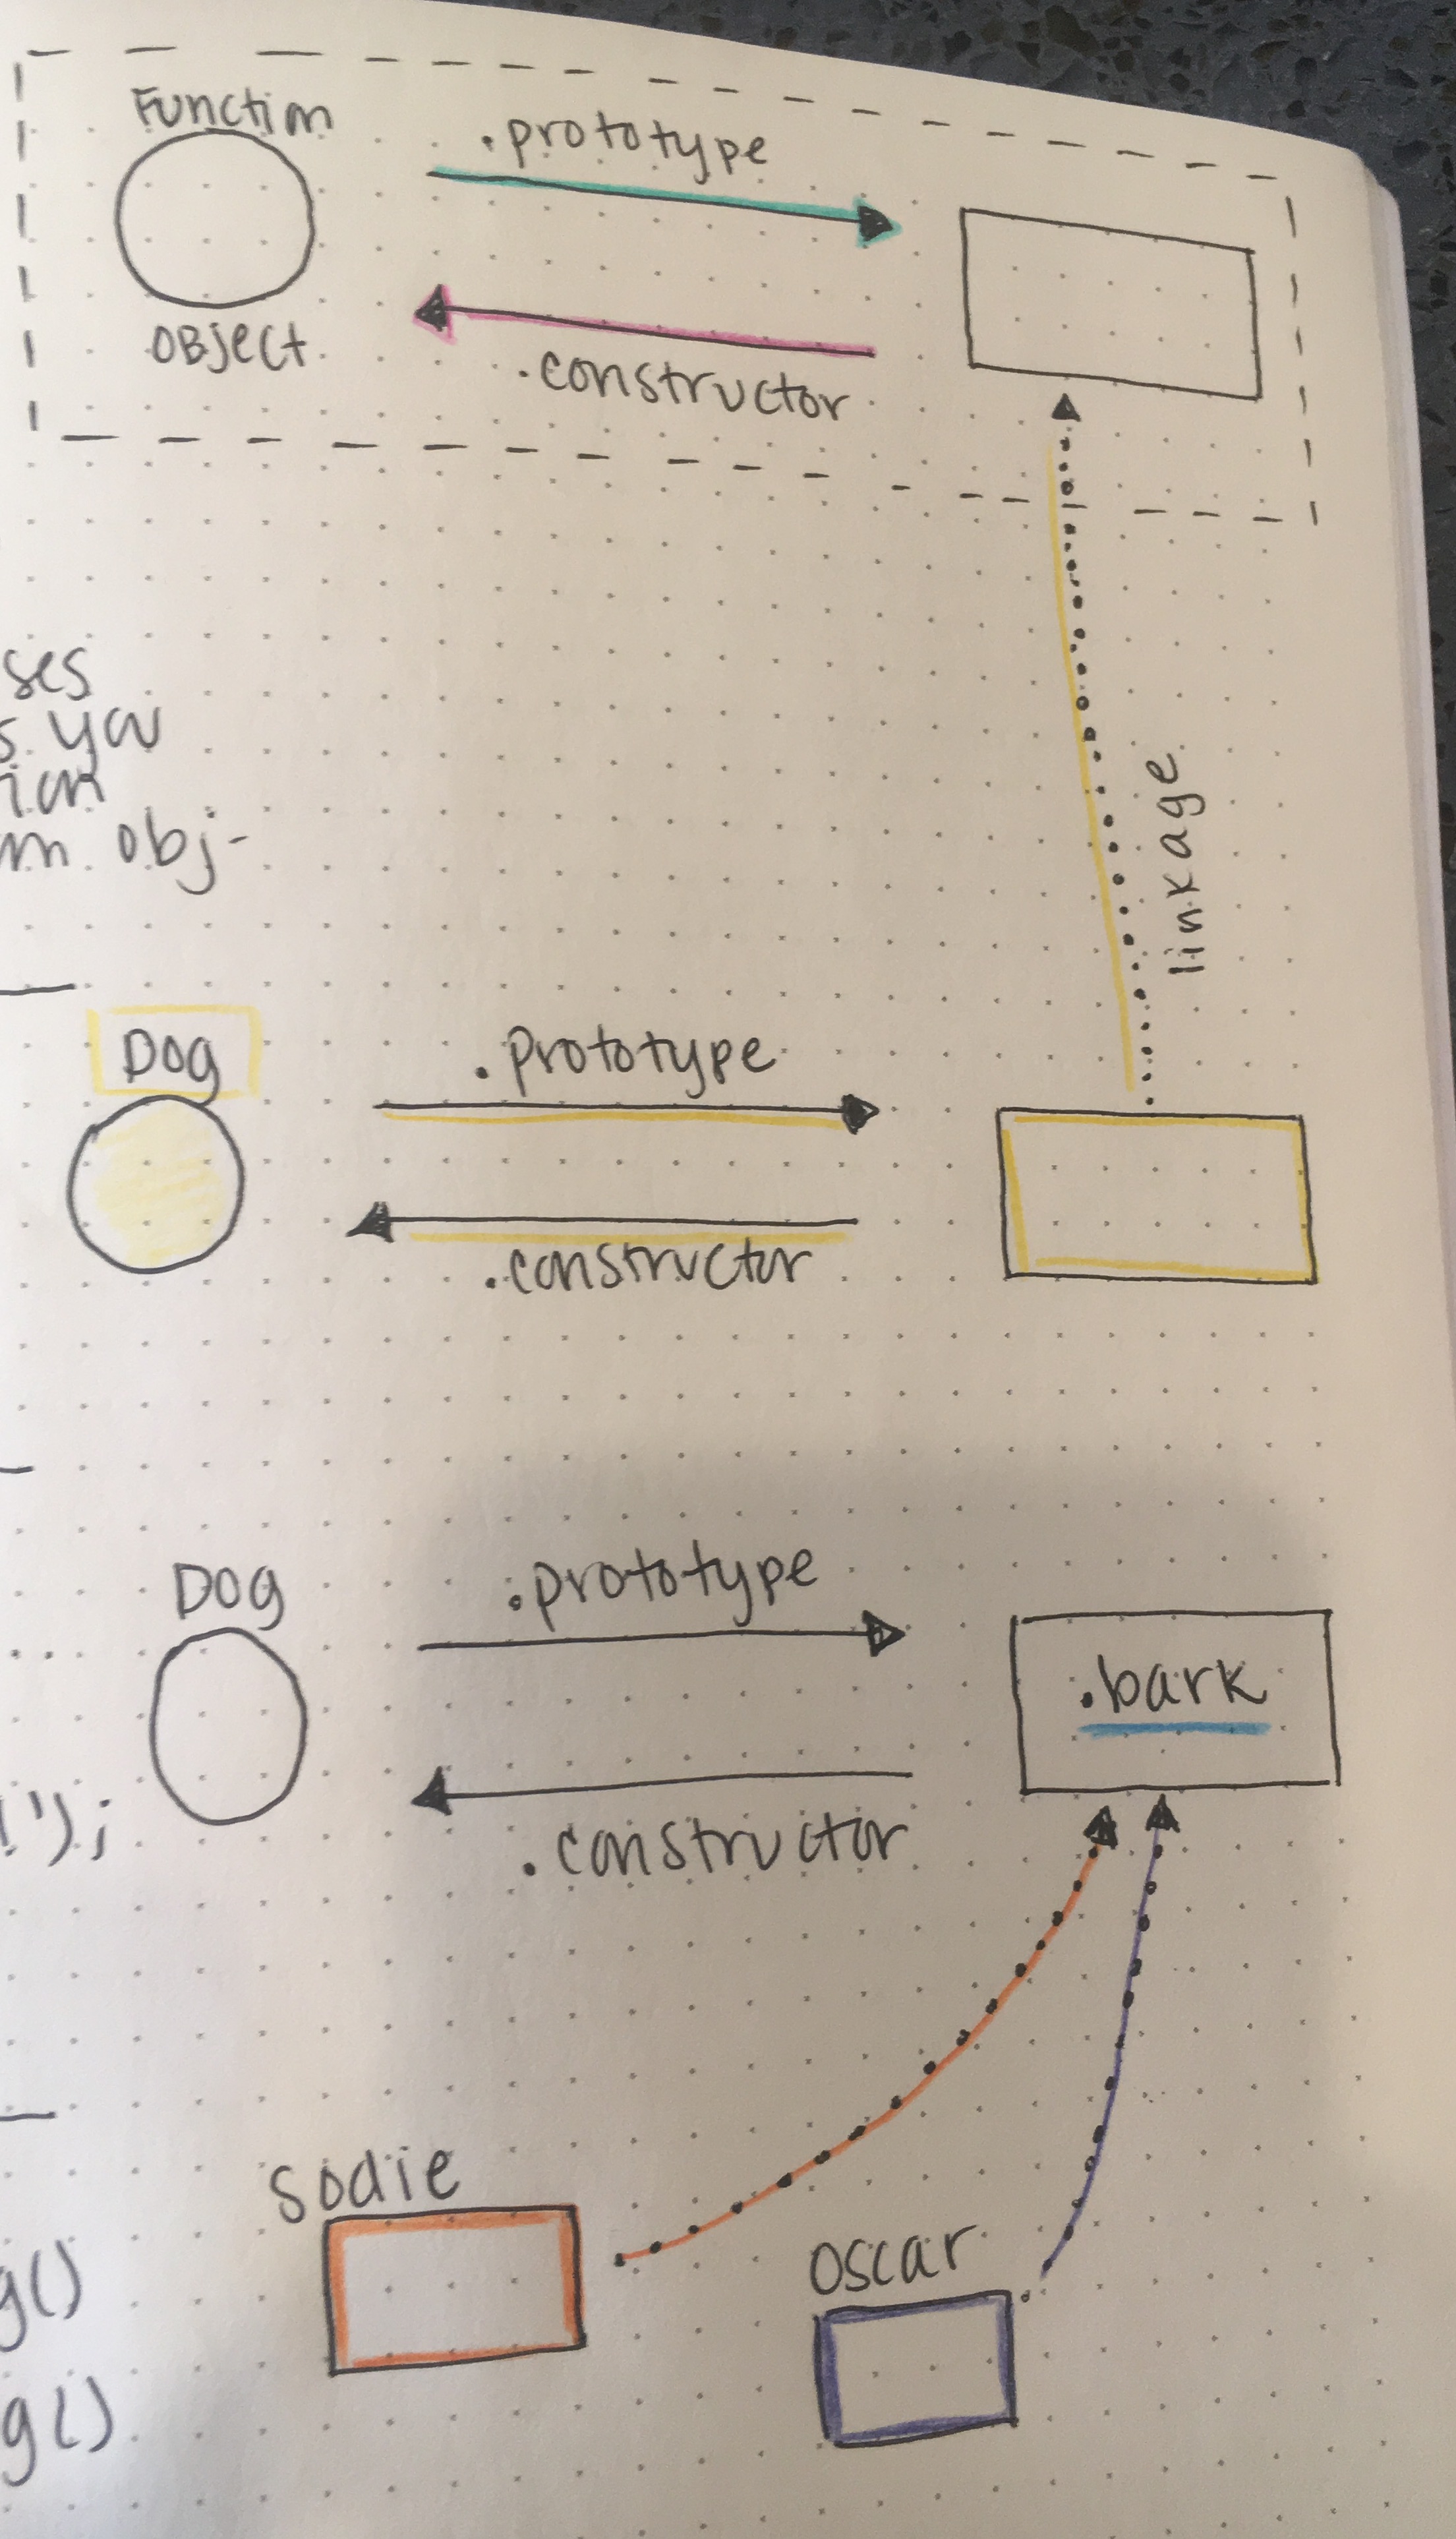 Function
.prototype
OBJECT
.constructor
ses
s you
m obj-
linkage
Dog
.prototype
.constructor
Dog
.prototype
.bark
!');
.constructor
sodie
oscar
g()
g()